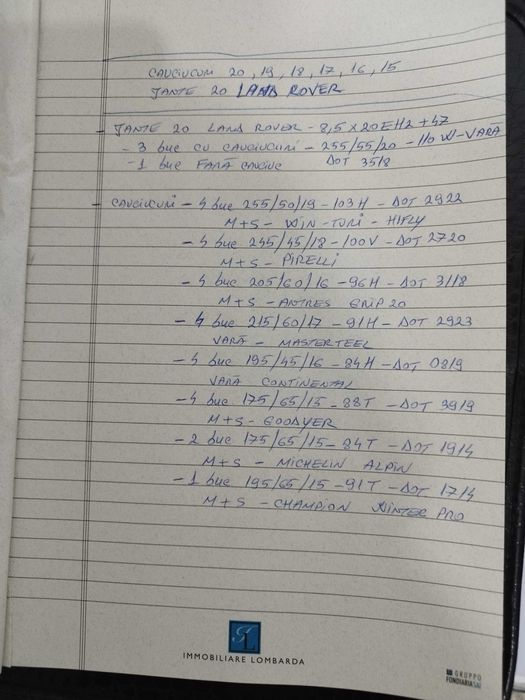 CAUCIUCURI 20, 19, 18, 17, 16, 15
JANTE 20 LAND ROVER
- JANTE 20 LAND ROVER - 8,5x20EH2+47
- 3 buc CU CAUCIUCURI - 255/55/20 - 110 W - VARĂ
- 1 buc FARĂ CAUCIUC DOT 3518
- CAUCIUCURI - 4 buc 255/50/19 - 103 H - DOT 2922
M+S - WIN-TURI - HIFLY
- 4 buc 245/45/18 - 100V - DOT 2720
M+S - PIRELLI
- 4 buc 205/60/16 - 96H - DOT 3118
M+S - ANTRES GRIP 20
- 4 buc 215/60/17 - 91H - DOT 2923
VARĂ - MASTERTEEL
- 4 buc 195/45/16 - 84H - DOT 0819
VARĂ CONTINENTAL
- 4 buc 175/65/15 - 88T - DOT 3919
M+S - GOODYER
- 2 buc 175/65/15 - 84T - DOT 1914
M+S - MICHELIN ALPIN
- 1 buc 195/65/15 - 91T - DOT 1714
M+S - CHAMPION WINTER PRO
IMMOBILIARE LOMBARDA
GRUPPO
FONDIARIA SAI